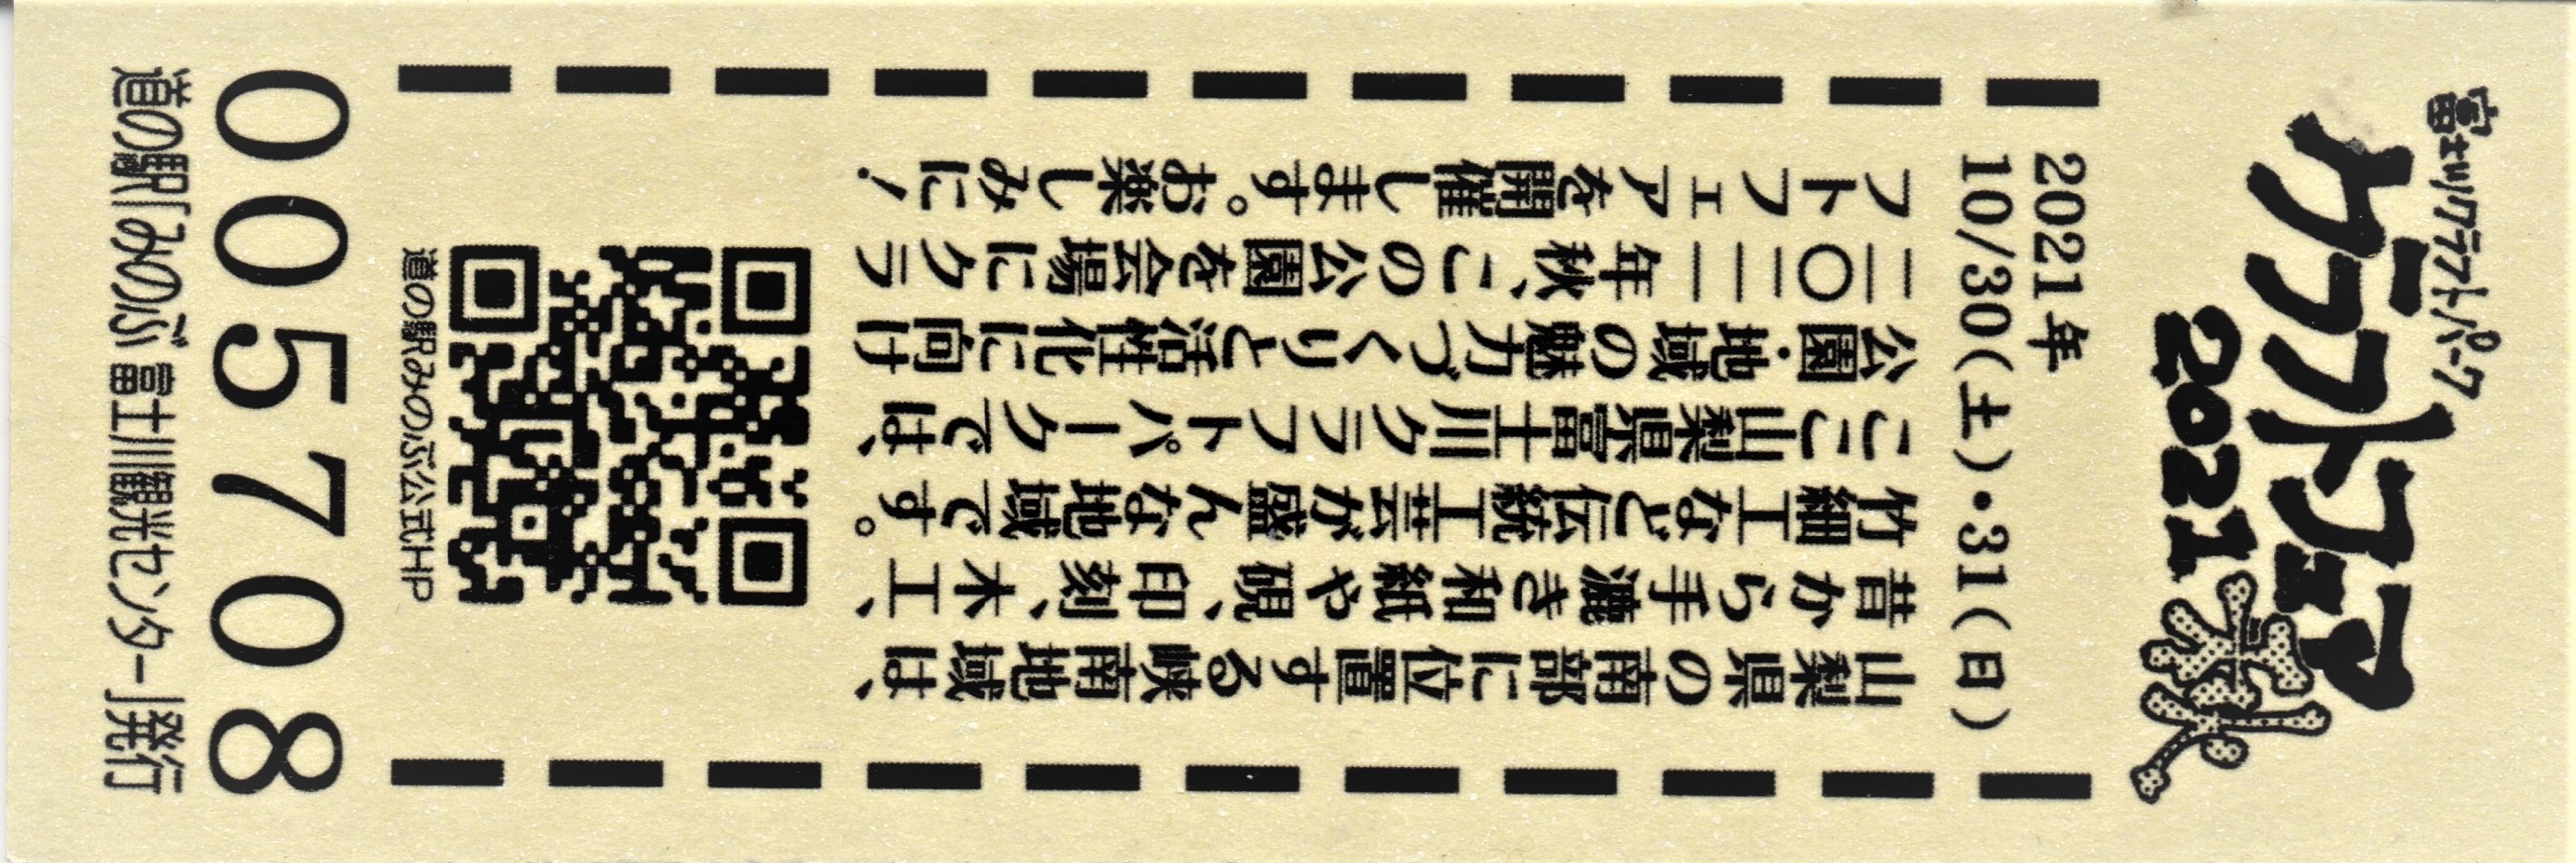 富士川クラフトパーク
クラフトフェア
2021 秋
2021年
10/30(土)・31(日)
山梨県の南部に位置する峡南地域は、
昔から手漉き和紙や硯、印刻、木工、
竹細工など伝統工芸が盛んな地域です。
ここ山梨県富士川クラフトパークでは、
公園・地域の魅力づくりと活性化に向け
二〇二一年秋、この公園を会場にクラ
フトフェアを開催します。お楽しみに！
道の駅みのぶ公式HP
005708
道の駅「みのぶ 富士川観光センター」発行